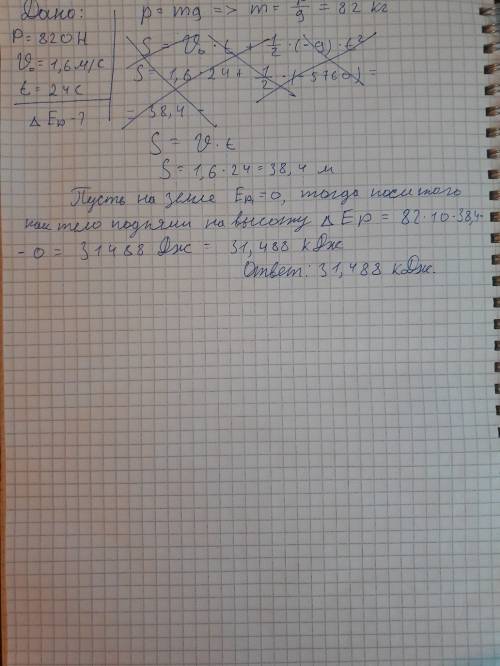 Дано:
P = 820 Н
V₀ = 1,6 м/с
t = 24 с
Δ Eₚ - ?
p = mg => m = p/g = 82 кг
S = V₀ · t + 1/2 · (-g) · t²
S = 1,6 · 24 + 1/2 · (-5760) =
= 38,4 -
S = V · t
S = 1,6 · 24 = 38,4 м
Пусть на земле Eₚ = 0, тогда после того
как тело подняли на высоту Δ Ep = 82 · 10 · 38,4 -
- 0 = 31488 Дж = 31,488 кДж
Ответ: 31,488 кДж.